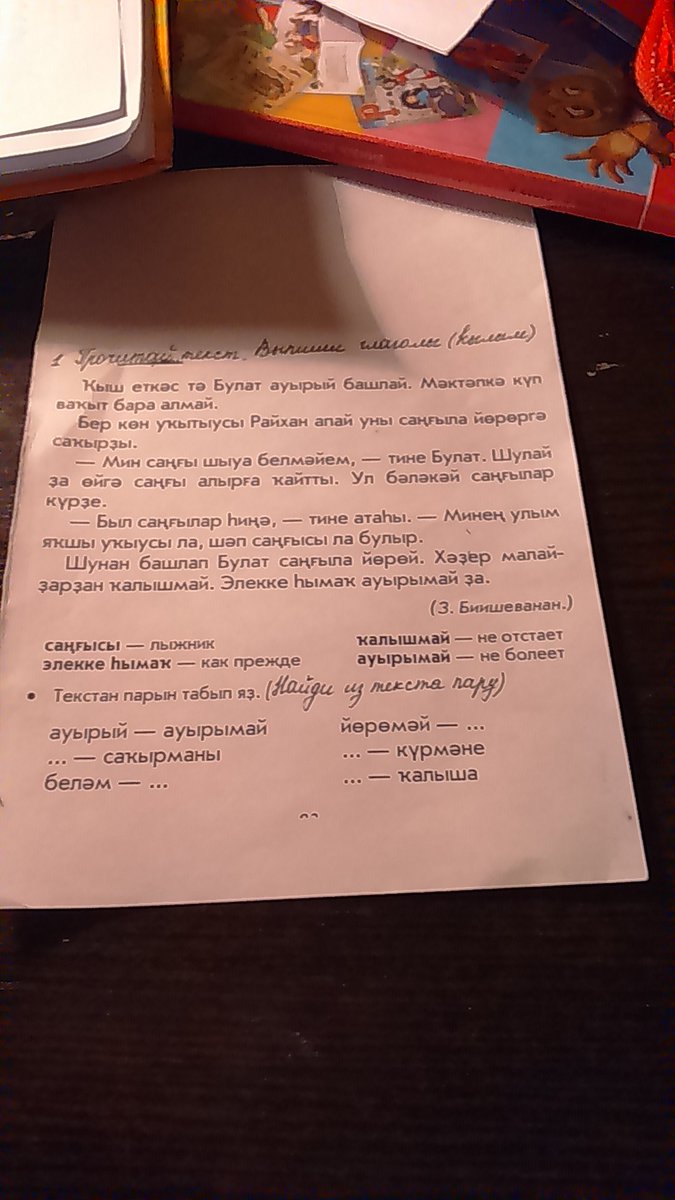 1 Прочитай текст. Выпиши глаголы (ҡылым)
Ҡыш еткәс тә Булат ауырый башлай. Мәктәпкә күп
ваҡыт бара алмай.
Бер көн уҡытыусы Райхан апай уны саңғыла йөрөргә
саҡырҙы.
— Мин саңғы шыуа белмәйем, — тине Булат. Шулай
ҙа өйгә саңғы алырға ҡайтты. Ул бәләкәй саңғылар
күрҙе.
— Был саңғылар һиңә, — тине атаһы. — Минең улым
яҡшы уҡыусы ла, шәп саңғысы ла булыр.
Шунан башлап Булат саңғыла йөрөй. Хәҙер малай-
ҙарҙан ҡалышмай. Элекке һымаҡ ауырымай ҙа.
(З. Биишеванан.)
саңғысы — лыжник
элекке һымаҡ — как прежде
ҡалышмай — не отстает
ауырымай — не болеет
• Текстан парын табып яҙ. (Найди из текста пару)
ауырый — ауырымай
... — саҡырманы
беләм — ...
йөрөмәй — ...
... — күрмәне
... — ҡалыша